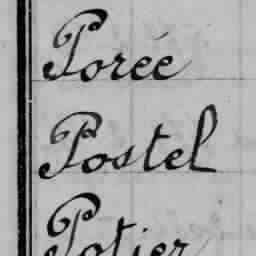 Porée
Postel
Potier